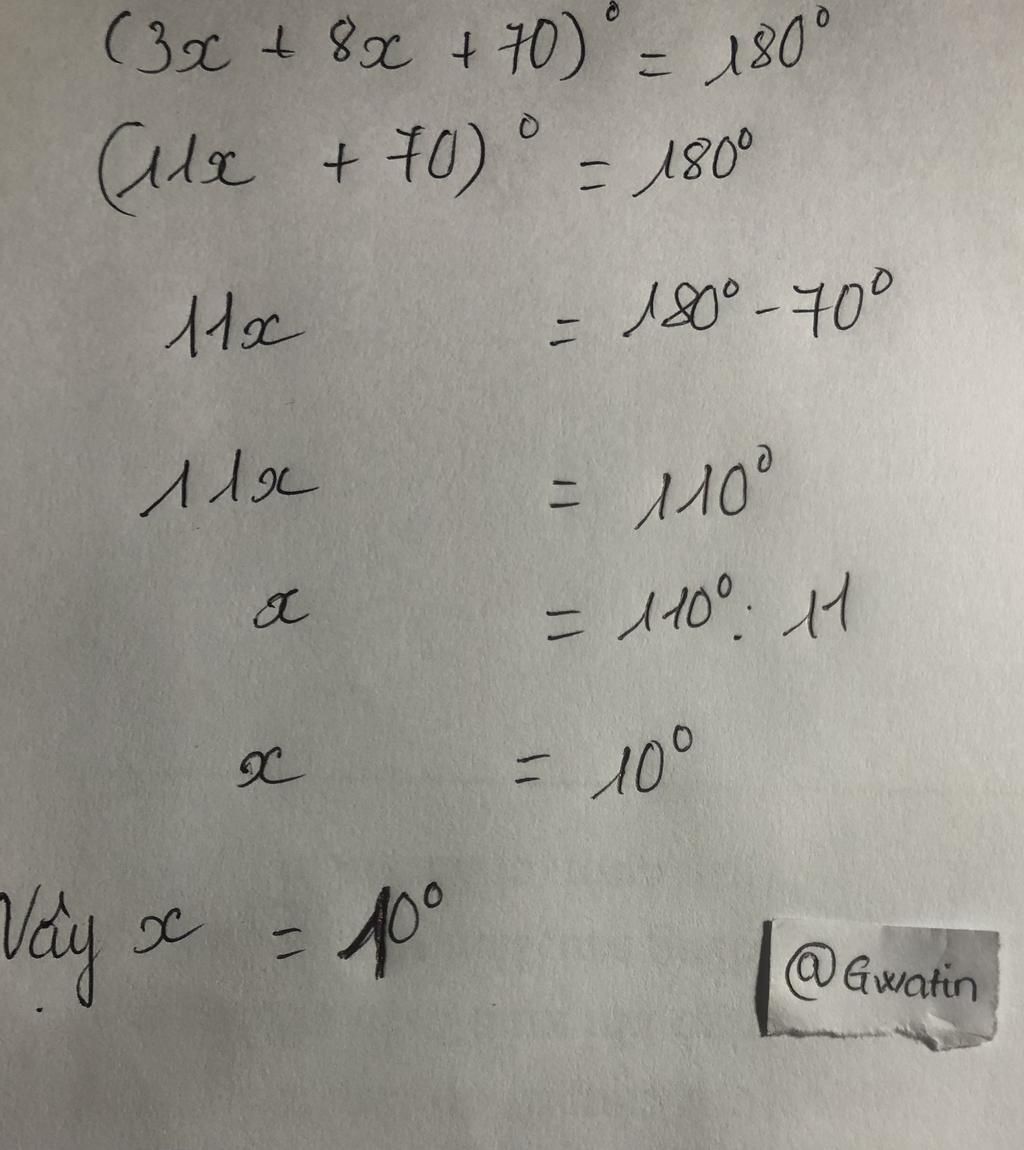 (3x + 8x + 70)° = 180°
(11x + 70)° = 180°
11x = 180° - 70°
11x = 110°
x = 110° : 11
x = 10°
Vậy x = 10°
@Gwatin